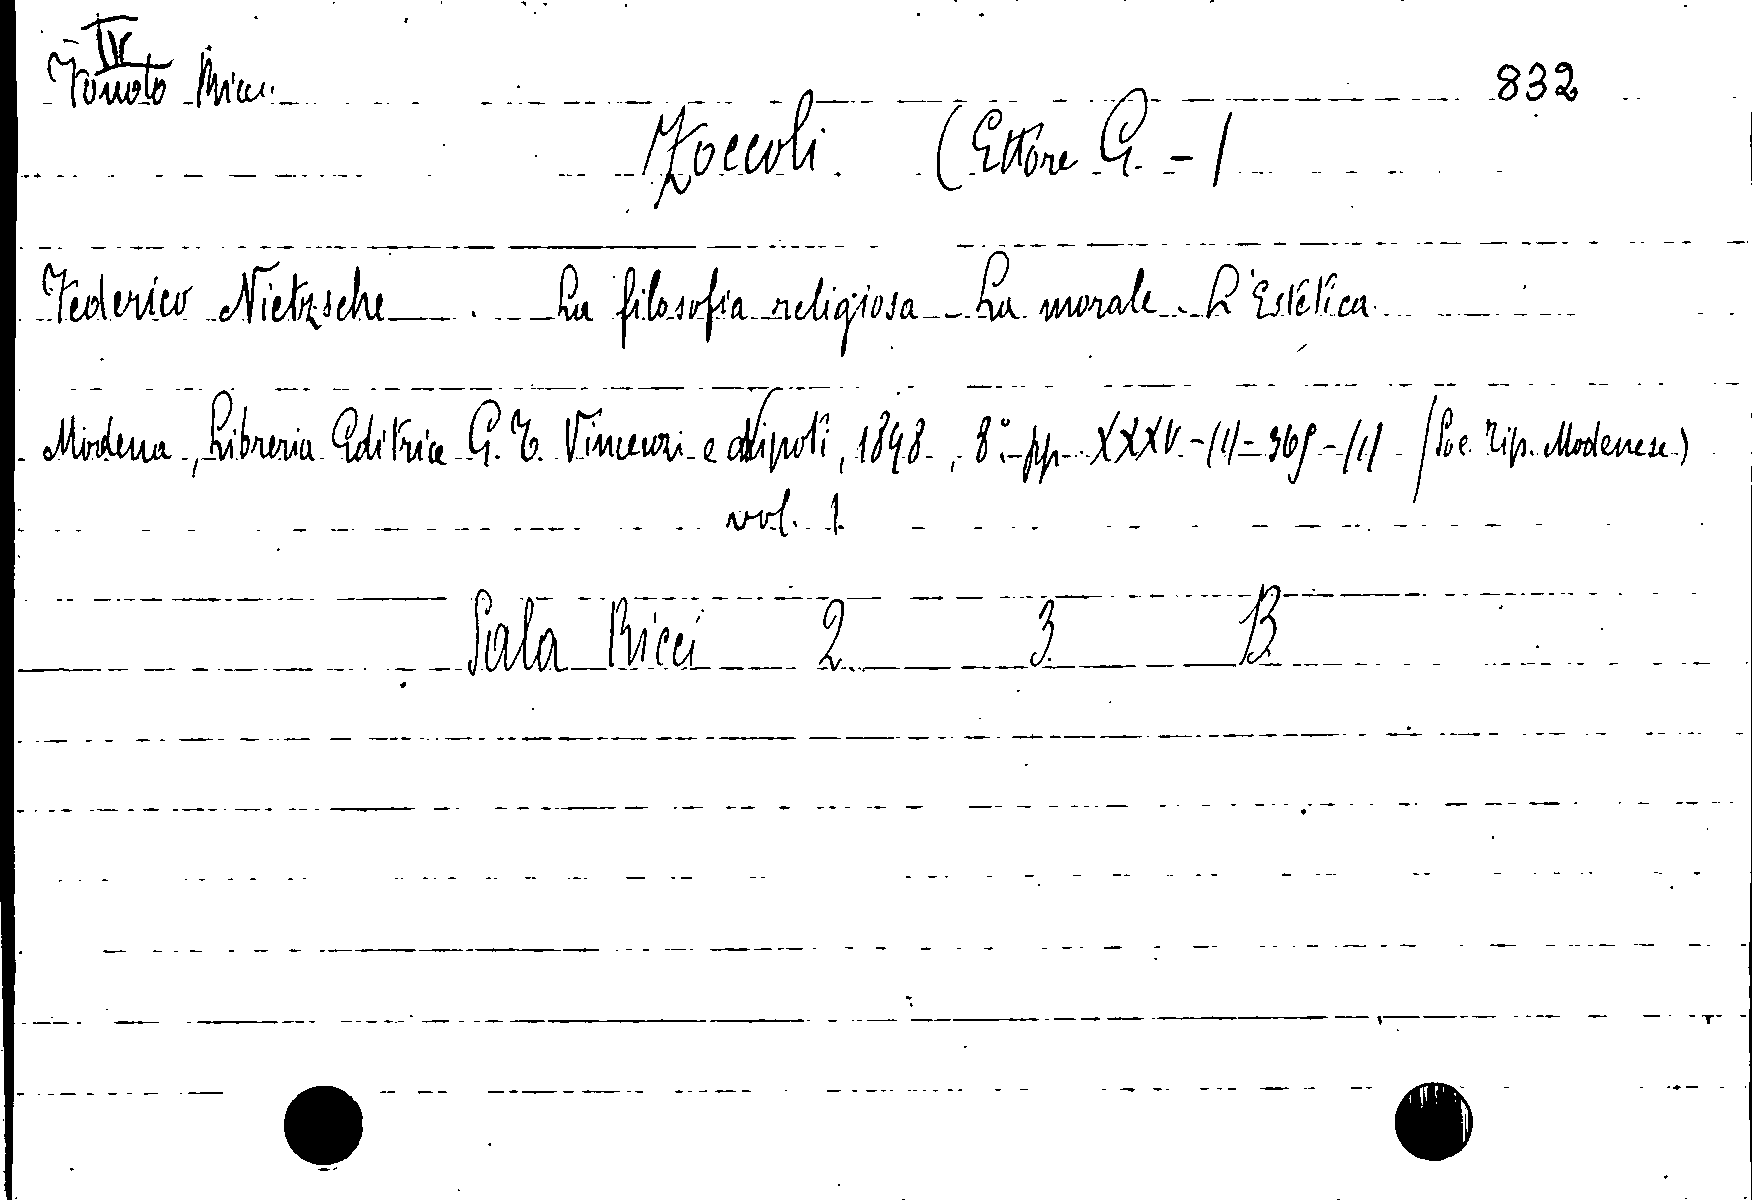 IV
Fondo Ricci. 832
Zoccoli (Ettore G. - )
Federico Nietzsche. La filosofia religiosa - La morale. L'Estetica.
Modena, Libreria Editrice G. T. Vincenzi e Nipoti, 1898, 8° pp. XXXV-(1)-369-(1) (Soc. Tip. Modenese)
vol. 1.
Sala Ricci 2 3 B.